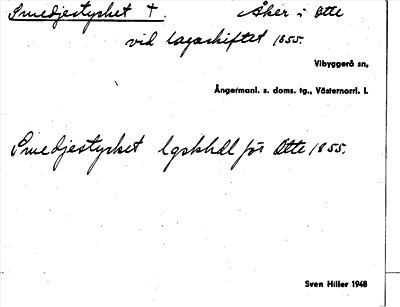 Smedjestycket †. Åker i Otte
vid lagaskiftet 1855.
Vibyggerå sn,
Ångermanl. s. doms. tg., Västernorrl. l.
Smedjestycket lgskhdl för Otte 1855.
Sven Hiller 1948